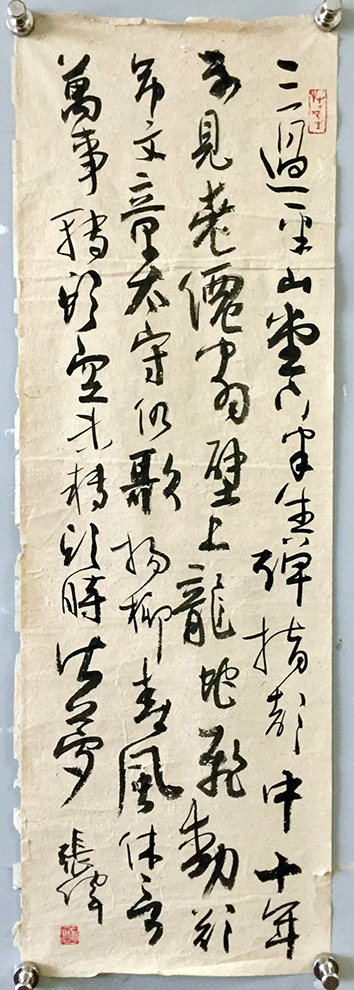 三過平山堂下半生彈指聲中十年
不見老僊翁壁上龍蛇飛動欲
吊文章太守仍歌楊柳春風休言
萬事轉頭空未轉頭時皆夢
張